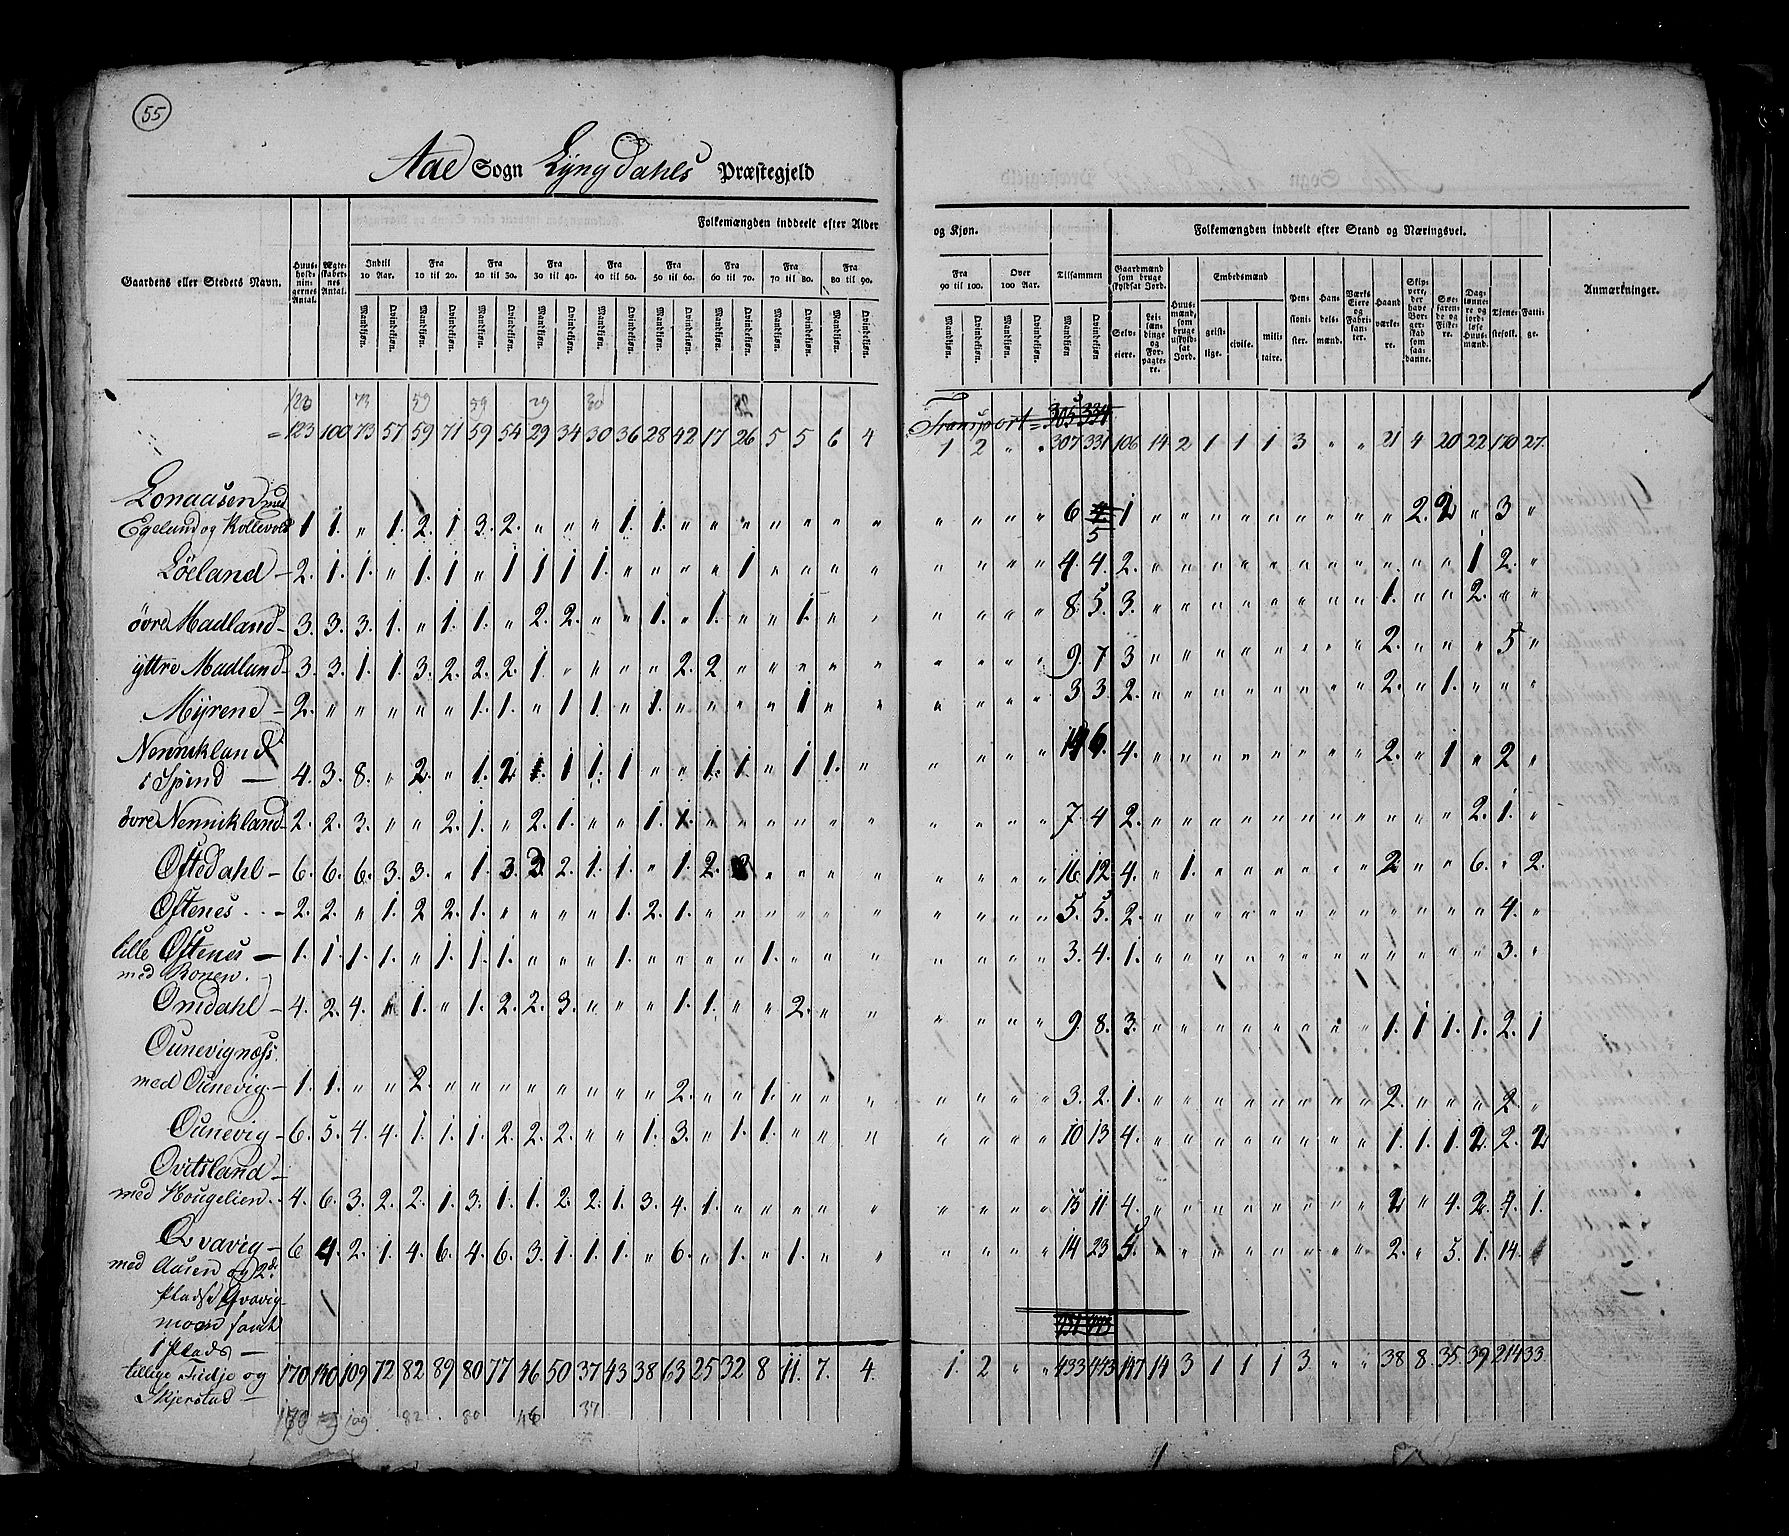 55
Aae Sogn Lyngdahls Præstegjeld
Folkemængden inddeelt efter Alder og Kjøn. Folkemængden inddeelt efter Stand og Næringsvei.
Gaardens eller Stedets Navn. Huusholdningernes Antal. Ægteskabernes Antal. Indtil 10 Aar. Fra 10 til 20. Fra 20 til 30. Fra 30 til 40. Fra 40 til 50. Fra 50 til 60. Fra 60 til 70. Fra 70 til 80. Fra 80 til 90. Fra 90 til 100. Over 100 Aar. Tilsammen Gaardmænd som bruge skyldsat Jord. Huusmænd, som bruge uskyldsat Jord. Embedsmænd Pensionister. Handelsmænd. Værks Eiere og Fabrikanter. Haandværkere. Skippere, der have Borgerskab som saadanne. Søefarende og Fiskere. Daglønnere og jordløse Huusmænd. Tjenestefolk. Fattige. Anmærkninger.
Mandkiøn. Qvindekiøn. Mandkiøn. Qvindekiøn. Mandkiøn. Qvindekiøn. Mandkiøn. Qvindekiøn. Mandkiøn. Qvindekiøn. Mandkiøn. Qvindekiøn. Mandkiøn. Qvindekiøn. Mandkiøn. Qvindekiøn. Mandkiøn. Qvindekiøn. Mandkiøn. Qvindekiøn. Mandkiøn. Qvindekiøn. Mandkiøn Qvindekiøn Selveiere. Leilændinge og Forpagtere. geistlige. civile. militaire.
123 73 59 59 29 30
Transport = 305 334
= 123 100 73 57 59 71 59 54 29 34 30 36 28 42 17 26 5 5 6 4 1 2 " " 307 331 106 14 2 1 1 1 3 " " 21 4 20 22 170 27.
Lonaasen med
Egeland og Kollevold 1 1. " 1. 2. 1 3. 2. " " " 1. 1. " " " " " " " " " " " 6 4 1 " " " " " " " " " 2. 2 " 3 "
5
Löeland – 2. 1. 1. " 1. 1 " 1 1 1 1. " " " " 1 " " " " " " " " 4 4. 2. " " " " " " " " " " " 1 2. "
övre Madland – 3. 3. 3. 1. " 1. 1. " 2. 2. " " 1. " 1. " " 1. " " " " " " 8. 5. 3. " " " " " " " " 1. " " 2. " "
yttre Madland – 3. 3. 1. 1. 3. 2. 2. 2. 1. " " " " 2. 2. " " " " " " " " " 9. 7 3 " " " " " " " " 2. " " " 5 "
Myrend – 2. " " " " " 1. 1. " 1 1. " 1. " " " " 1 " " " " " " 3 3. 2. " " " " " " " " 2. " 1. " " "
Nennikland
i Spind — 4. 3. 8. " 2. " 1. 2 1. 1 1. 1 " " 1. 1. " 1 1. " " " " " 14 6. 4. " " " " " " " " 2. " 1 " 2 "
övre Nennikland – 2. 2. 3. " " 2. 1. " 2. 1. " " 1. 1. " " " " " " " " " " 7. 4 2. " " " " " " " " " " " 2. 1. "
Oftedahl – 6. 6. 6. 3. 3. " 1. 3. 3. 2. 1. 1. " 1. 2. 2 " " " " " " " " 16. 12. 4. " 1. " " " " " " 2 " " 6. " 2.
Oftenes – 2. 2. " 1. 2 2. 1. " " " " 1. 2. 1. " " " " " " " " " " 5. 5. 2. " " " " " " " " " " " " 4. "
lille Oftenes – 1. 1. 1. 1. " 1. 1. 1. " " " 1. " " " " 1. " " " " " " " 3. 4. 1. " " " " " " " " " " " " 3. "
med Ronen.
Omdahl – 4. 2. 4. " 1. " 1. 2. 2. 3. " " " 1. 1. " " 2. " " " " " " 9. 8. 3. " " " " " " " " 1. 1 1. 1. 2. 1
Ounevignæss.
med Ounevig – 1. 1. " " 2. " " " " " " " " 2. " " 1. " " " " " " " 3. 2. 1. " " " " " " " " 2. " " " 2 "
Ounevig – 6. 5. 4. 4. 1. 1. 1. 2. 2. 2. " " 1. 3. " 1. 1. " " " " " " " 10 13 4. " " " " " " " " 1. 1. 1. 2 2. 2
Ovitsland –
med Hougelien. 4. 6. 3. 2. 2. 1. 3. 1. 1. 2. 2. 1. 3. 4. 1. " " " " " " " " " 15 11. 4. " " " " " " " " 2 " 4. 2. 4. 1.
Qvavig – 6. 4. 2. 1. 4. 6. 4. 6. 3. 1. 1. 1. " 6. " 1. " 1. " " " " " " 14 23 5. " " " " " " " " 2. " 5. 1. 14.
med Aasen og 2de
Pladse Qvavig-
moen samt
1 Plads –
tillige Fidje og 170 130 109 72 82 89 80 77 46 50 37 43 38 63 25 32 8 11. 7. 4. 1. 2 " " 433 443 147 14 3 1 1 1 3. " " 38 8. 35. 39 214 33.
Skjerstad –
170 109 82 80 46 37